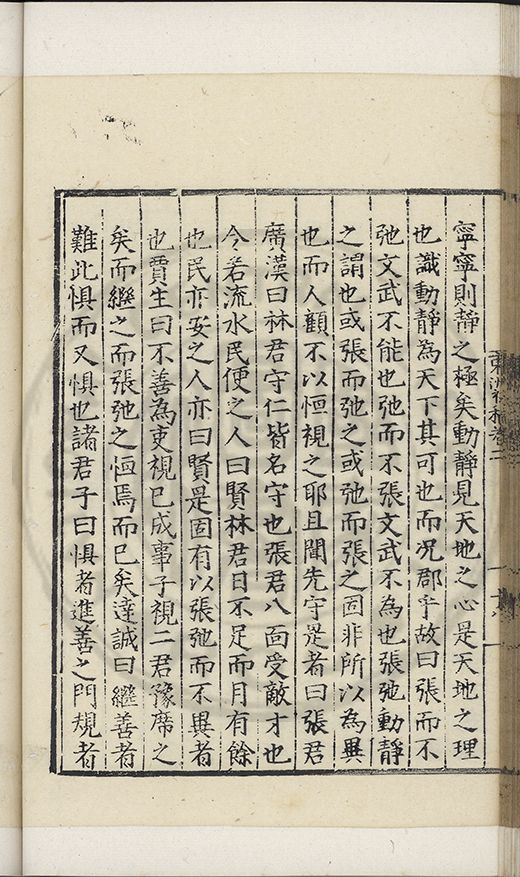 寧寧則靜之極矣動靜見天地之心是天地之理
也識動靜為天下其可也而況郡乎故曰張而不
弛文武不能也弛而不張文武不為也張弛動靜
之謂也或張而弛之或弛而張之固非所以為異
也而人顧不以恒視之耶且聞先守是者曰張君
廣漢曰林君守仁皆名守也張君八面受敵才也
今若流水民便之人曰賢林君日不足而月有餘
也民亦安之人亦曰賢是固有以張弛而不異者
也賈生曰不善為吏視已成事子視二君豫席之
矣而繼之而張弛之恒焉而已矣達誠曰繼善者
難此懼而又懼也諸君子曰懼者進善之門規者